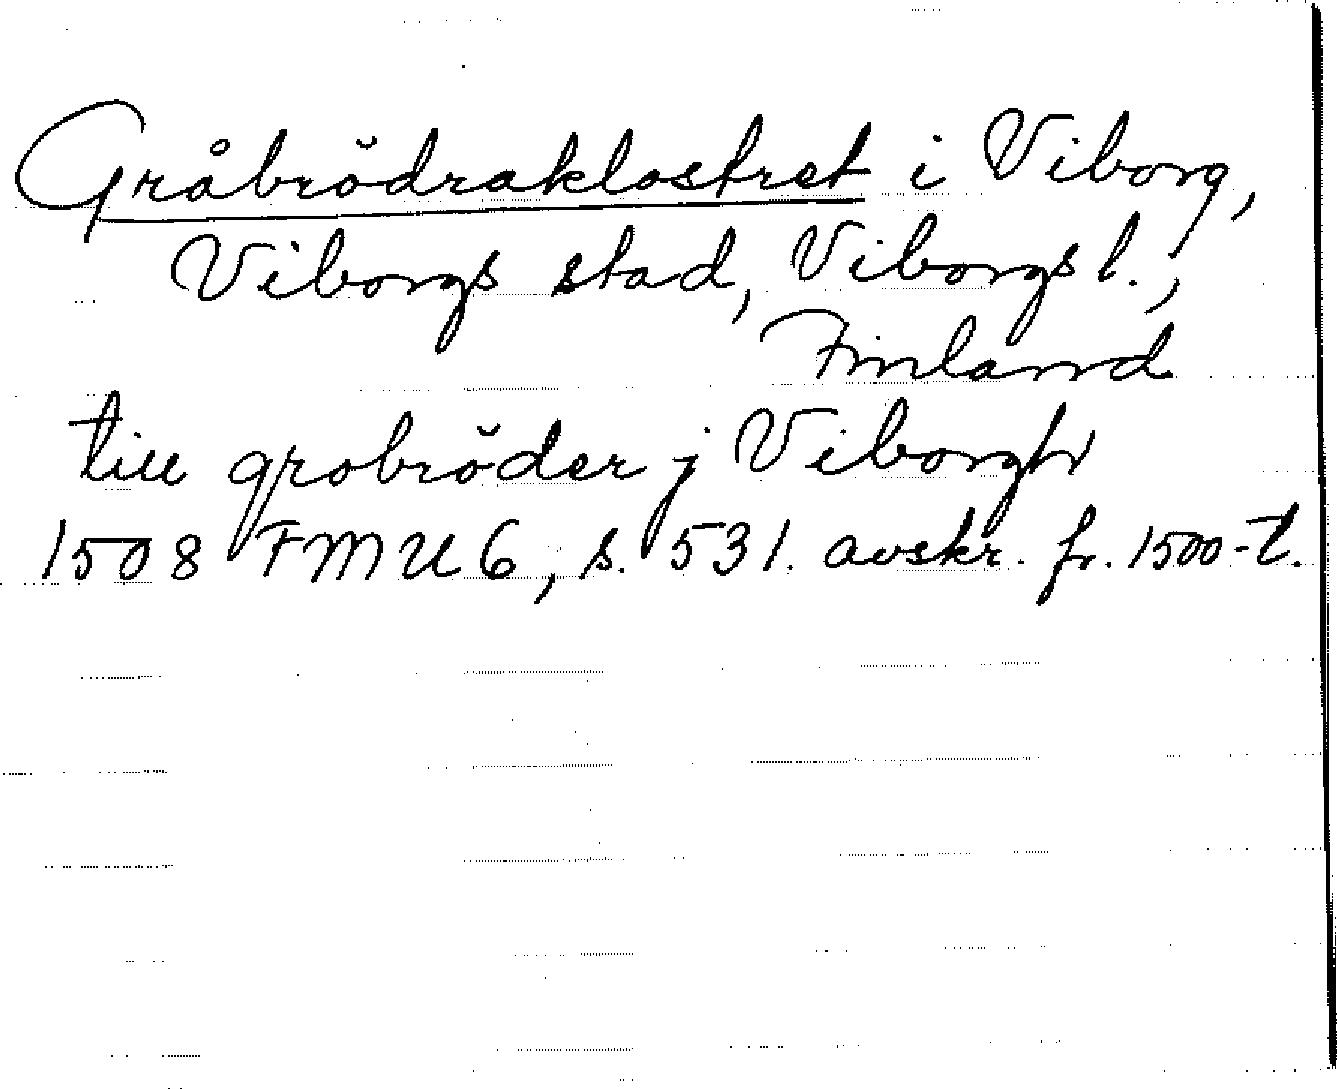 Gråbrödraklostret i Viborg,
Viborgs stad, Viborgs l.,
Finland
till grobröder j Viborgh
1508 FMU 6, s. 531. avskr. fr. 1500-t.